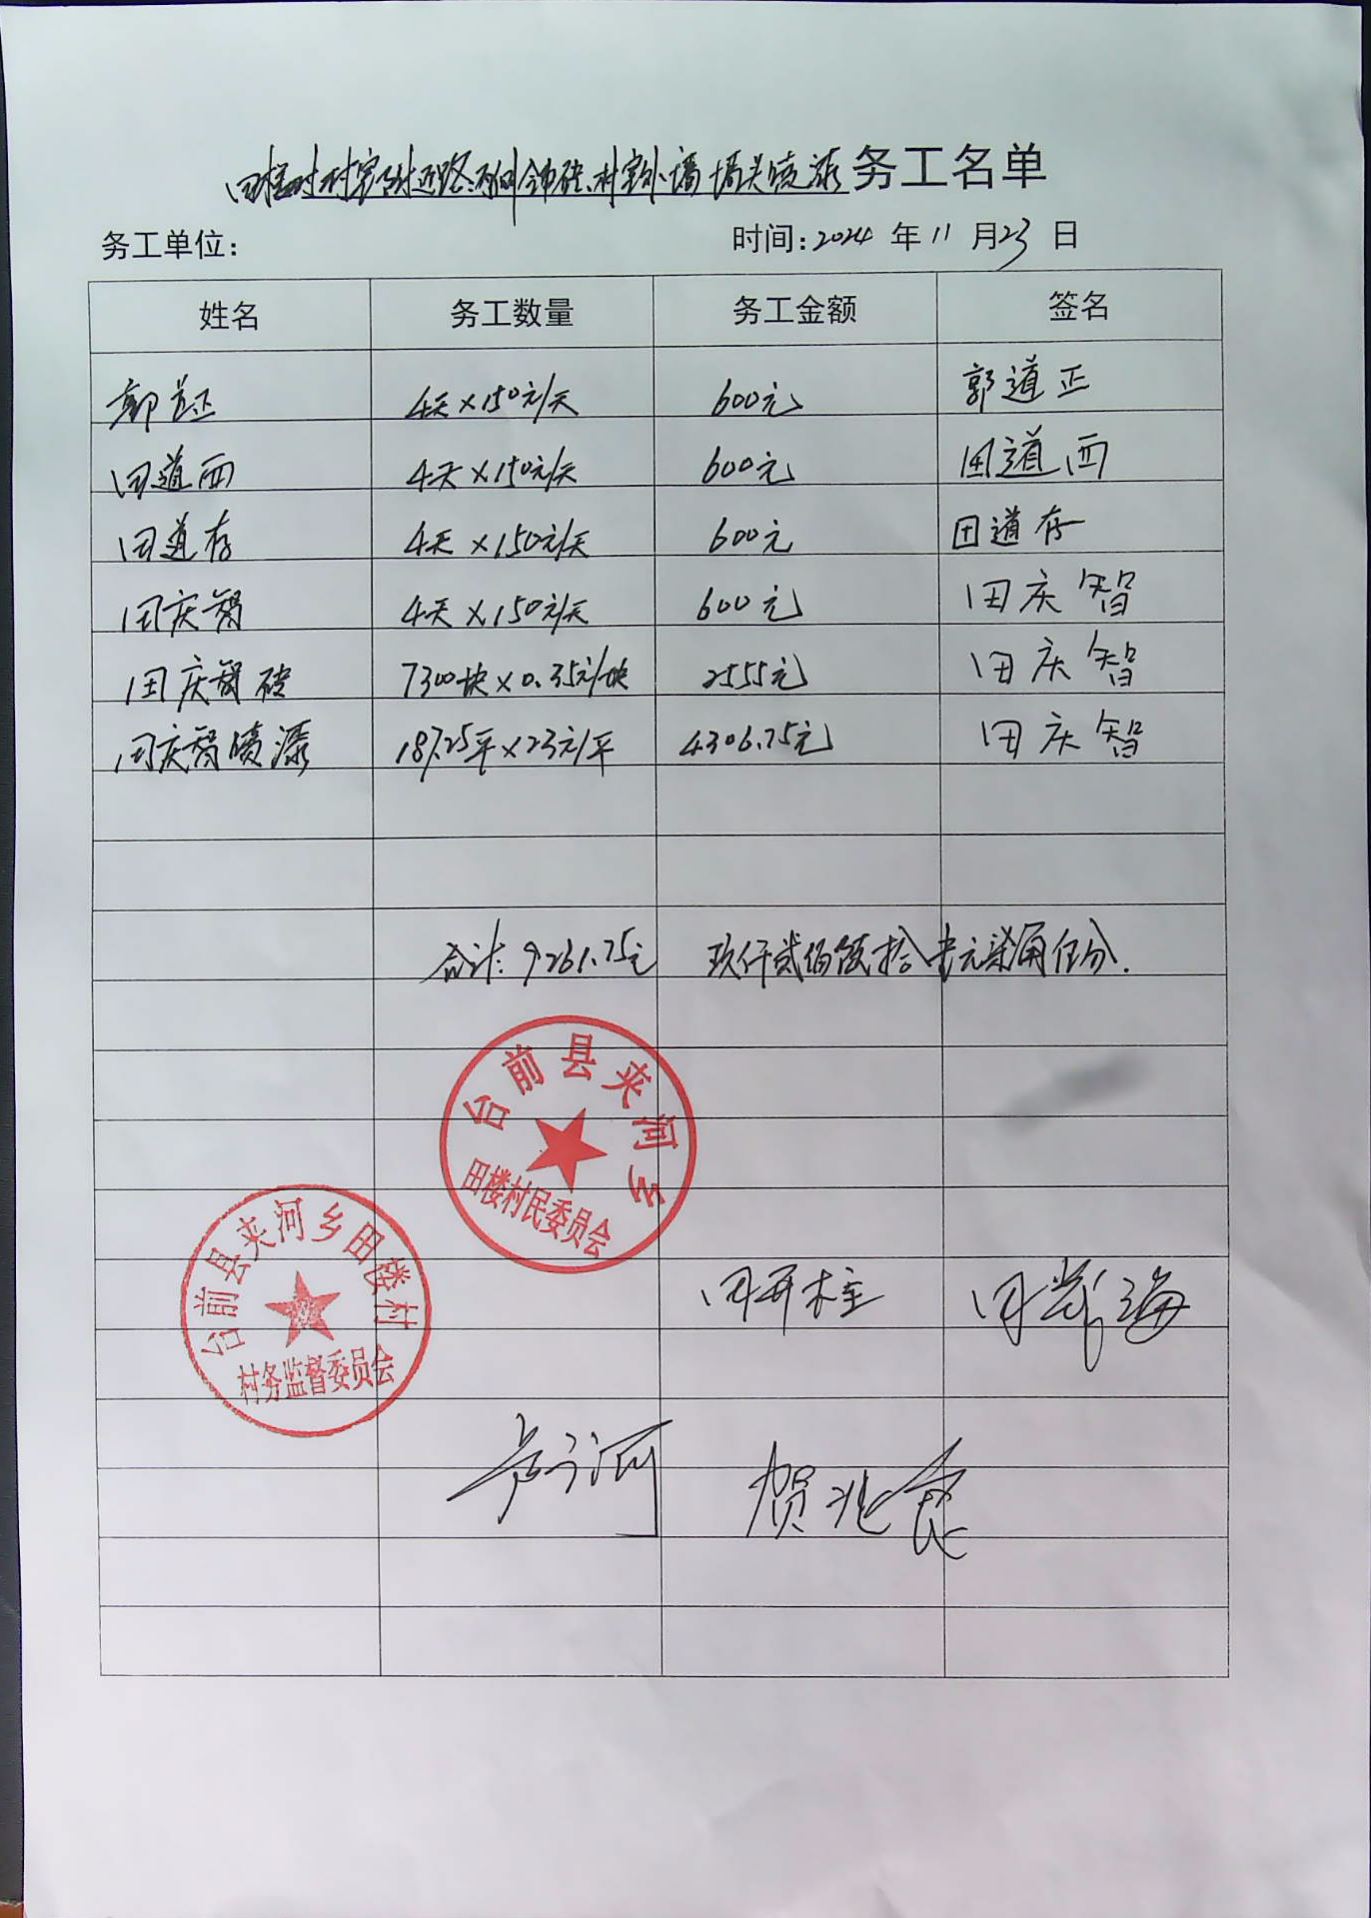 田楼村村室附近路两侧铺砖、村室外墙墙头喷漆务工名单
务工单位： 时间：2024 年 11 月 23 日
姓名 务工数量 务工金额 签名
郭道正 4天×150元/天 600元 郭道正
田道西 4天×150元/天 600元 田道西
田道存 4天×150元/天 600元 田道存
田庆智 4天×150元/天 600元 田庆智
田庆智砖 7300块×0.35元/块 2555元 田庆智
田庆智喷漆 187.25平×23元/平 4306.75元 田庆智
合计：9261.75元 玖仟贰佰陆拾壹元柒角伍分.
台前县夹河乡
田楼村民委员会
台前县夹河乡田楼村
村务监督委员会
田再柱 田 海
河 贺兆良